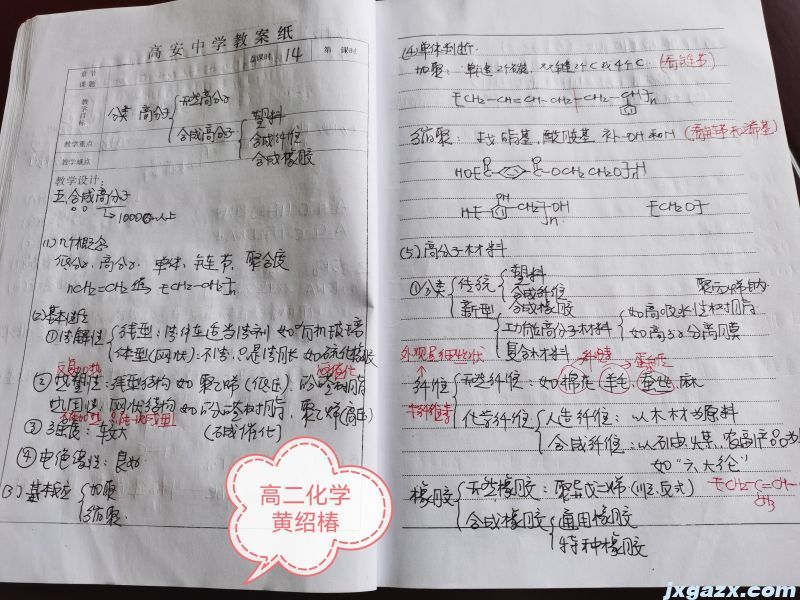 高安中学教案纸
总课时 14 第 课时
章节
课题
教学目标
分类 高分子
天然高分子
合成高分子
塑料
合成纤维
合成橡胶
教学重点
教学难点
教学设计:
五.合成高分子
→10000以上
(1)几个概念
低分子,高分子,单体,链节,聚合度
nCH2=CH2 → ⁅CH2-CH2⁆n
(2)基本性质
①溶解性
线型:溶于适当溶剂 如有机玻璃
体型(网状):不溶,只是溶胀 如硫化橡胶
②热塑性:线型结构 如聚乙烯(低压),酚醛树脂
热固性:网状结构 如酚醛树脂,聚乙烯(高压)
③强度:较大
(硫化)
④电绝缘性:良好
(3)基本反应
加聚
缩聚
高二化学
黄绍椿
(4)单体判断.
加聚:单键2个碳,双键2个C或4个C (看链节)
⁅CH2-CH=CH-CH2-CH2-CH⁆n
缩聚:找酯基,酰胺基 补-OH和H (看链节和端基)
OCH2CH2O⁆nH
OH
⁅CH2O⁆
(5)高分子材料
①分类
传统
塑料
合成纤维
合成橡胶
新型
功能高分子材料
复合材料
如高吸水性树脂
如高分子分离膜
纤维
天然纤维:如棉花,羊毛,蚕丝,麻
纤维素
→蛋白质
化学纤维
人造纤维:以木材为原料
合成纤维:以石油煤,农副产品为
如“六大纶”
橡胶
天然橡胶:聚异戊二烯(顺,反式)
⁅CH2-C=CH-
CH3
合成橡胶
通用橡胶
特种橡胶
jxgazx.com